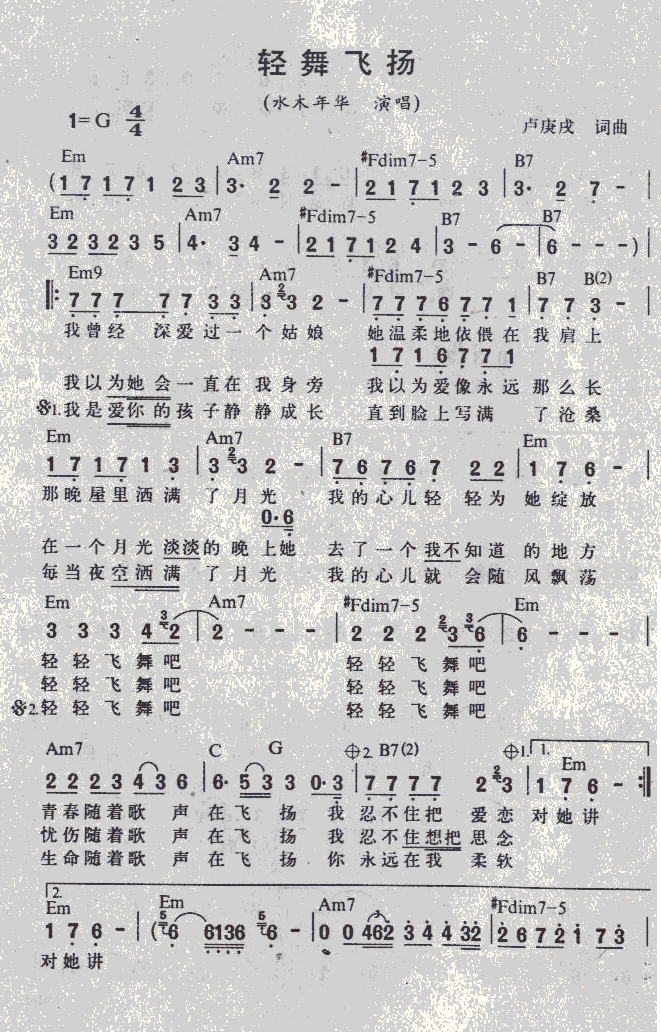 轻舞飞扬
(水木年华 演唱)
1=G 4/4
卢庚戌 词曲
Em Am7 #Fdim7-5 B7
(1 7 1 7 1 2 3 | 3· 2 2 - | 2 1 7 1 2 3 | 3· 2 7 - |
Em Am7 #Fdim7-5 B7 B7
3 2 3 2 3 5 | 4· 3 4 - | 2 1 7 1 2 4 | 3 - 6 - | 6 - - - ) |
Em9 Am7 #Fdim7-5 B7 B(2)
‖: 7 7 7 7 7 3 3 | 3 2 3 2 - | 7 7 7 6 7 7 1 | 7 7 3 - |
我曾经 深爱过一个姑娘 她温柔地依偎在我肩上
1 7 1 6 7 7 1
我以为她会一直在我身旁 我以为爱像永远那么长
𝄋1.我是爱你的孩子静静成长 直到脸上写满 了沧桑
Em Am7 B7 Em
1 7 1 7 1 3 | 3 2 3 2 - | 7 6 7 6 7 2 2 | 1 7 6 - |
那晚屋里洒满 了月光 我的心儿轻 轻为她绽放
0·6
在一个月光淡淡的晚上她 去了一个我不知道的地方
每当夜空洒满 了月光 我的心儿就 会随风飘荡
Em Am7 #Fdim7-5 Em
3 3 3 4 3 2 | 2 - - - | 2 2 2 2 3 3 6 | 6 - - - |
轻轻飞舞吧 轻轻飞舞吧
轻轻飞舞吧 轻轻飞舞吧
𝄋2.轻轻飞舞吧 轻轻飞舞吧
Am7 C G 𝄌2. B7(2) 𝄌1. 1. Em
2 2 2 3 4 3 6 | 6· 5 3 3 0·3 | 7 7 7 7 2 2 3 | 1 7 6 - :‖
青春随着歌 声在飞 扬 我忍不住把 爱恋对她讲
忧伤随着歌 声在飞 扬 我忍不住想把思念
生命随着歌 声在飞 扬 你永远在我 柔软
2.
Em Em Am7 #Fdim7-5
1 7 6 - | (5 6 6136 5 6 - | 0 0 462 3 4 4 32 | 2 6 7 2 1 7 3 |
对她讲